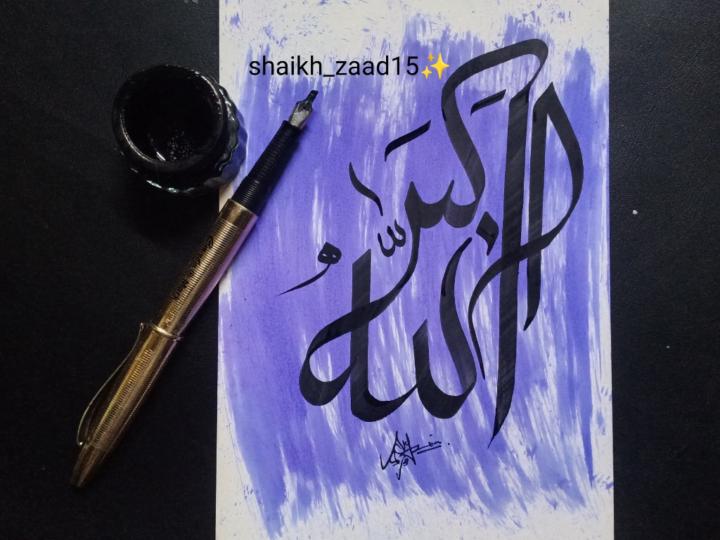 shaikh_zaad15✨
الله أكبر